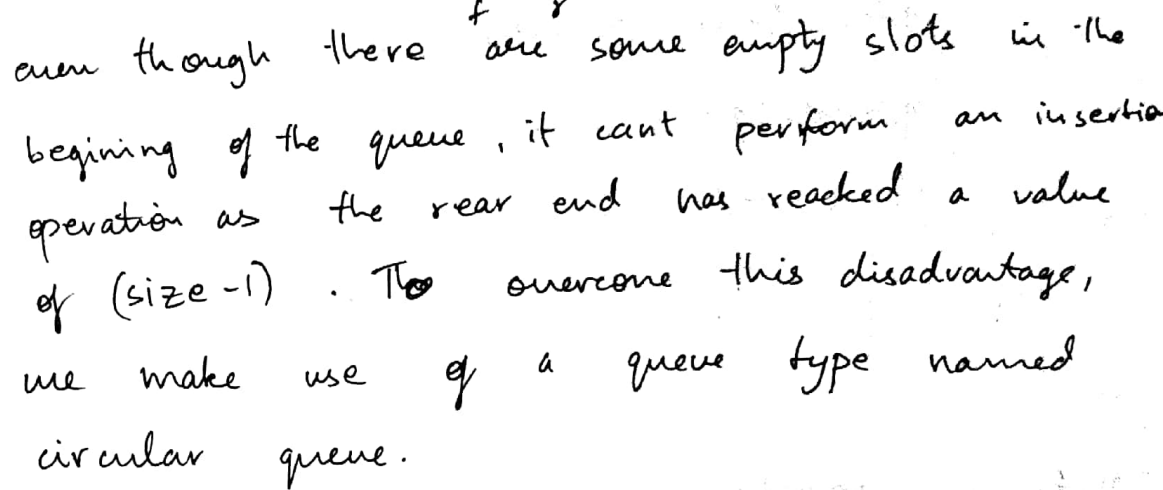 f r
even though there are some empty slots in the
begining of the queue, it cant perform an insertio
operation as the rear end has reached a value
of (size-1). To overcome this disadvantage,
we make use of a queue type named
circular queue.